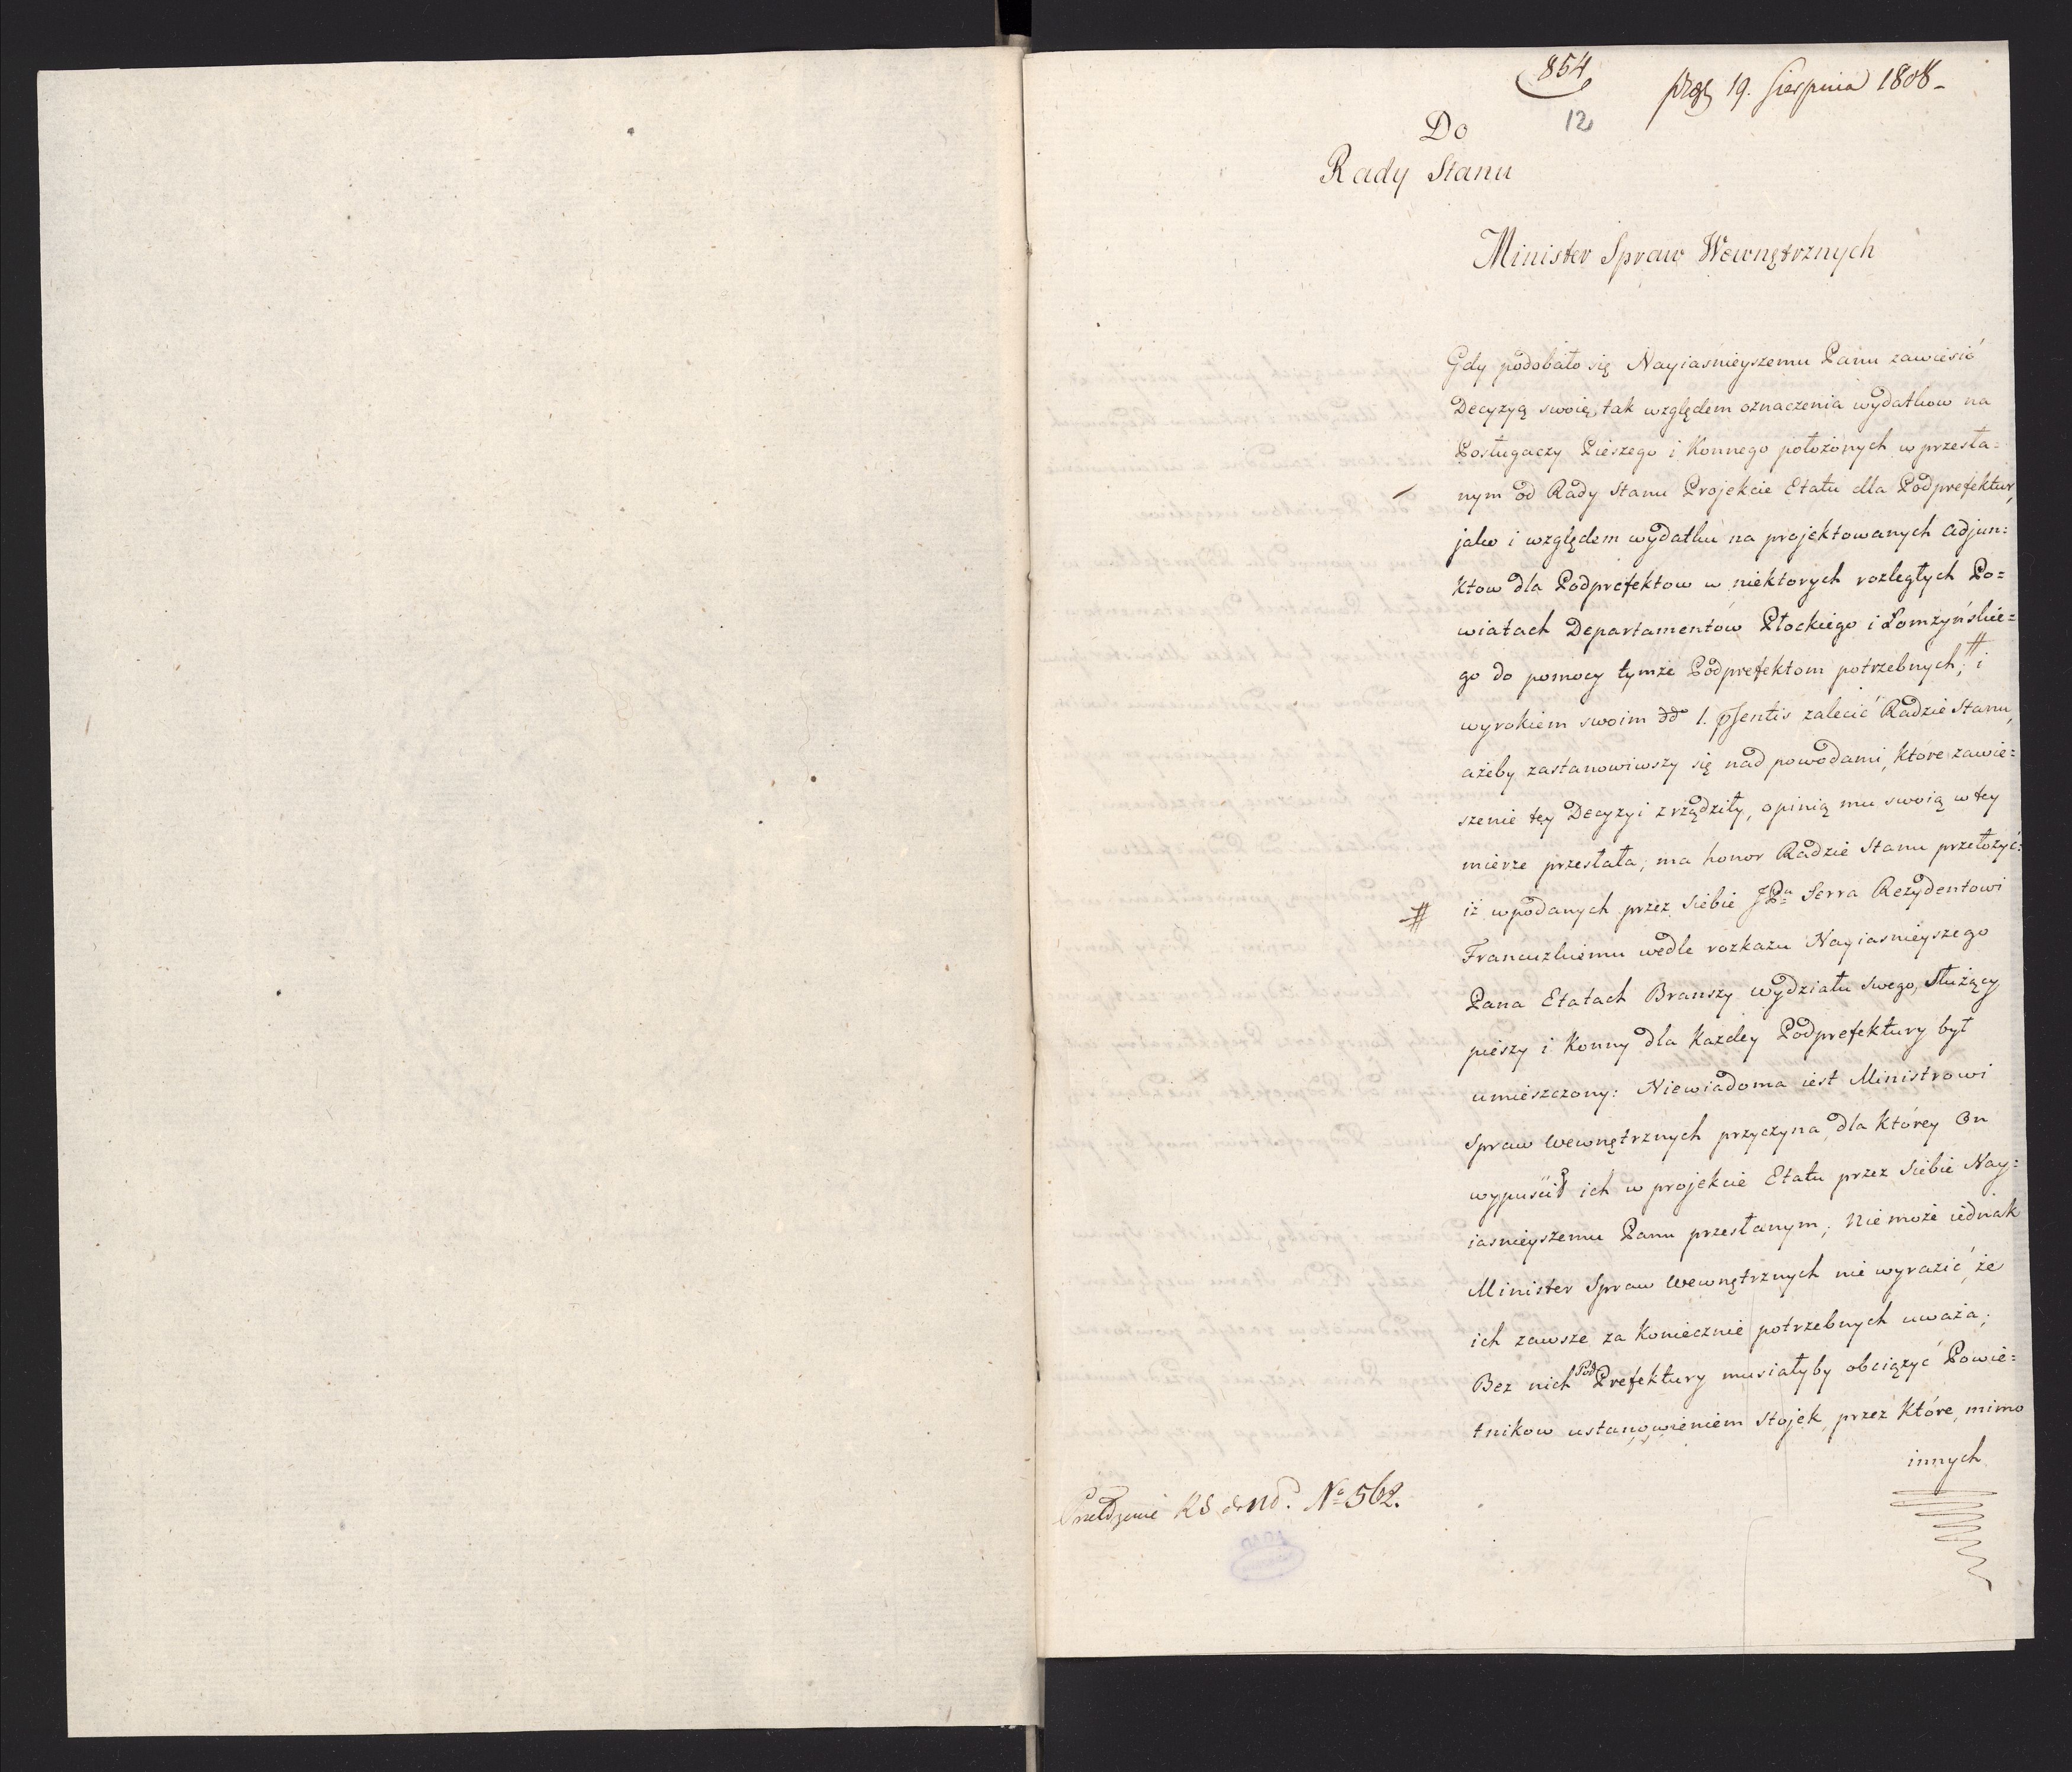 854
19. Sierpnia 1808 -
12
Do
Rady Stanu
Minister Spraw Wewnętrznych
Gdy podobało się Nayiasnieyszemu Panu zawiesić
Decyzyą swoię, tak względem oznaczenia wydatkow na
Posługaczy Pieszego i Konnego położonych w przesła=
nym od Rady Stanu Projekcie Etatu dla Podprefektur,
jako i względem wydatku na projektowanych adjun=
ktow dla Podprefektow w niektorych rozległych Po=
wiatach Departamentów Płockiego i Łomżyńskie=
go do pomocy tymże Podprefektom potrzebnych; # i
wyrokiem swoim dd° 1. psentis zalecić Radzie Stanu,
ażeby zastanowiwszy się nad powodami, które zawie=
szenie tey Decyzyi zrządziły, opinią mu swoią w tey
mierze przesłała, ma honor Radzie Stanu przełożyć:
# iż w podanych przez siebie JPu Serra Rezydentowi
Francuzkiemu wedle rozkazu Nayiasnieyszego
Pana Etatach Branszy wydziału swego, Służący
pieszy i Konny dla Każdey Podprefektury był
umieszczony: Niewiadoma iest Ministrowi
Spraw Wewnętrznych przyczyna, dla którey On
wypuścił ich w projekcie Etatu przez siebie Nay=
iasnieyszemu Panu przesłanym; Nie może iednak
Minister Spraw Wewnętrznych nie wyrazić, że
ich zawsze za Koniecznie potrzebnych uważa;
Bez nich Pod Prefektury musiałyby obciążyć Powie=
tnikow ustanowieniem stojek, przez Które, mimo
innych
N° 562.